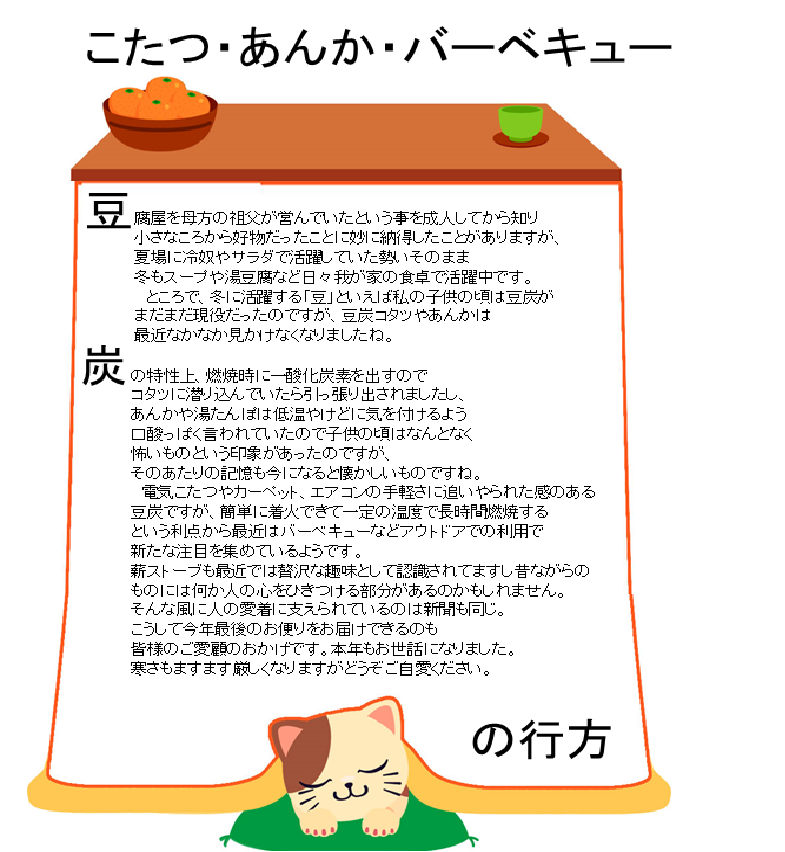 こたつ・あんか・バーベキュー
豆腐屋を母方の祖父が営んでいたという事を成人してから知り
小さなころから好物だったことに妙に納得したことがありますが、
夏場に冷奴やサラダで活躍していた勢いそのまま
冬もスープや湯豆腐など日々我が家の食卓で活躍中です。
ところで、冬に活躍する「豆」といえば私の子供の頃は豆炭が
まだまだ現役だったのですが、豆炭コタツやあんかは
最近なかなか見かけなくなりましたね。
炭の特性上、燃焼時に一酸化炭素を出すので
コタツに潜り込んでいたら引っ張り出されましたし、
あんかや湯たんぽは低温やけどに気を付けるよう
口酸っぱく言われていたので子供の頃はなんとなく
怖いものという印象があったのですが、
そのあたりの記憶も今になると懐かしいものですね。
電気こたつやカーペット、エアコンの手軽さに追いやられた感のある
豆炭ですが、簡単に着火できて一定の温度で長時間燃焼する
という利点から最近はバーベキューなどアウトドアでの利用で
新たな注目を集めているようです。
薪ストーブも最近では贅沢な趣味として認識されてますし昔ながらの
ものには何か人の心をひきつける部分があるのかもしれません。
そんな風に人の愛着に支えられているのは新聞も同じ。
こうして今年最後のお便りをお届けできるのも
皆様のご愛顧のおかげです。本年もお世話になりました。
寒さもますます厳しくなりますがどうぞご自愛ください。
の行方